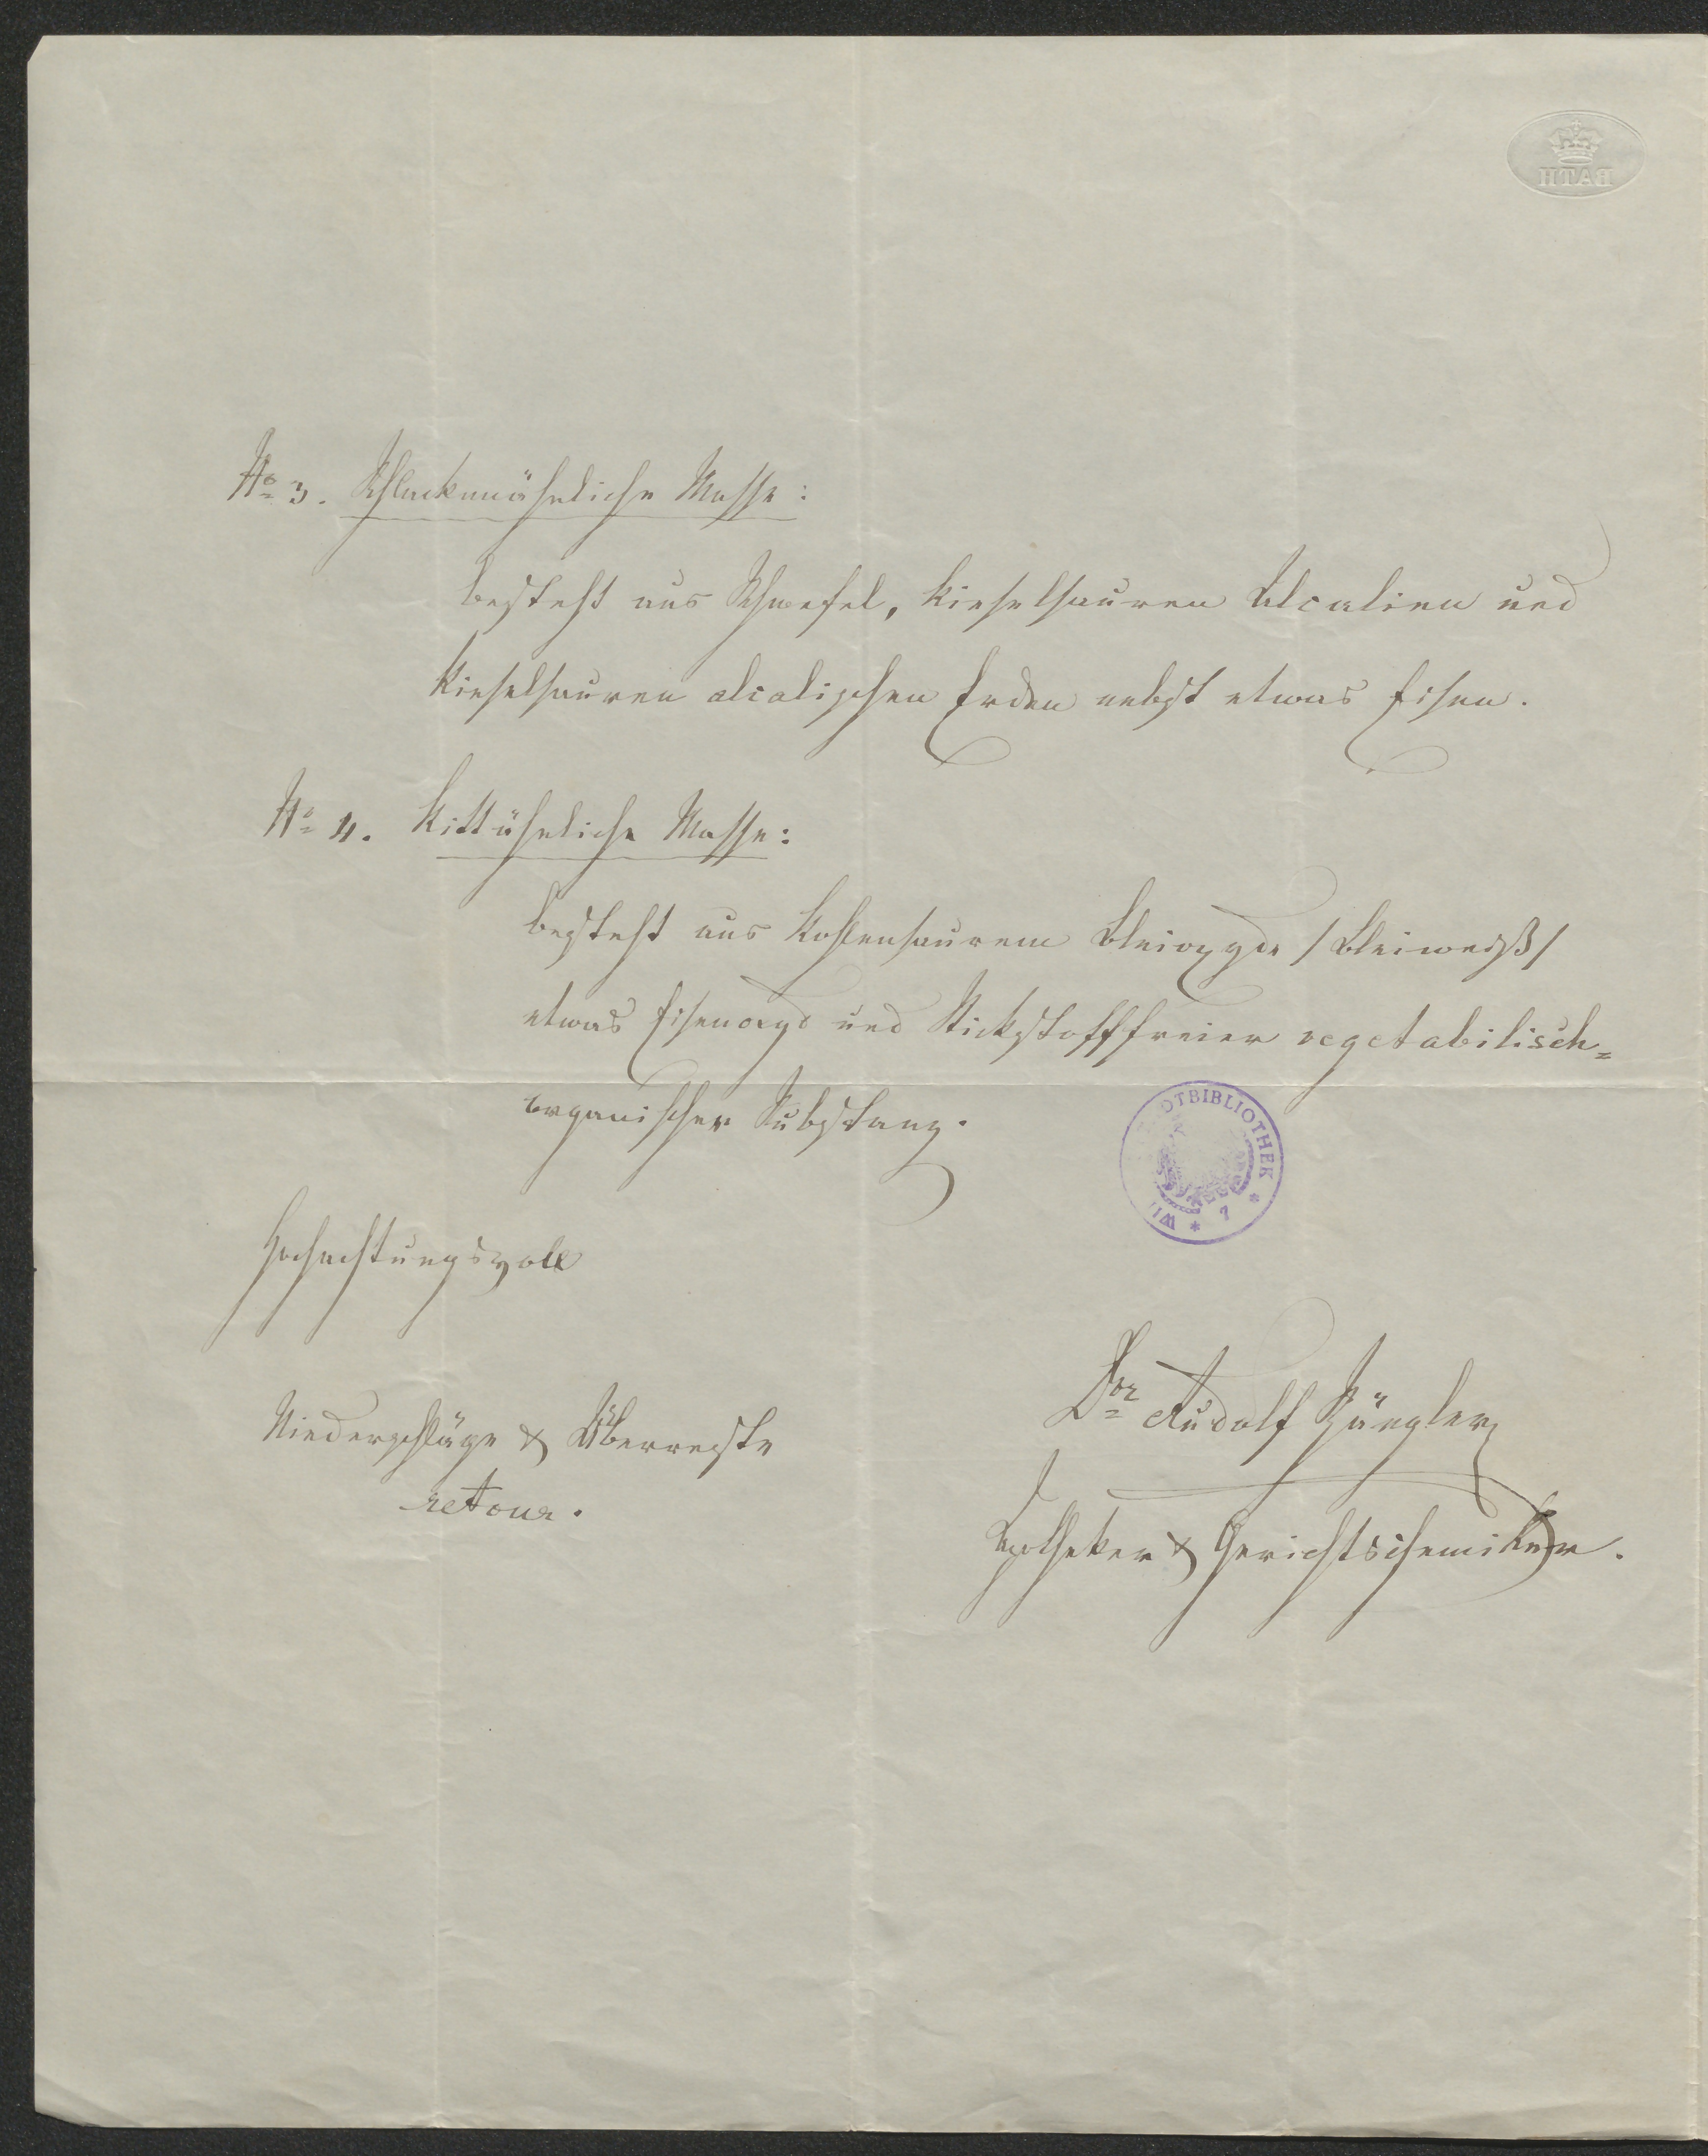 BATH
No 3. Schlackenähnliche Masse:
besteht aus Schwefel, kieselsauren Alcalien und
kieselsauren alcalischen Erden nebst etwas Eisen.
No 4. Kittähnliche Masse:
besteht aus kohlensaurem Bleioxyde /Bleiweiß/
etwas Eisenoxyd und Stickstofffreier vegetabilisch-
organischer Substanz.
DTBIBLIOTHEK
Hochachtungsvoll
Dor Rudolf
Niederschläge & Überreste
retour.
Apotheker & Gerichtschemiker.